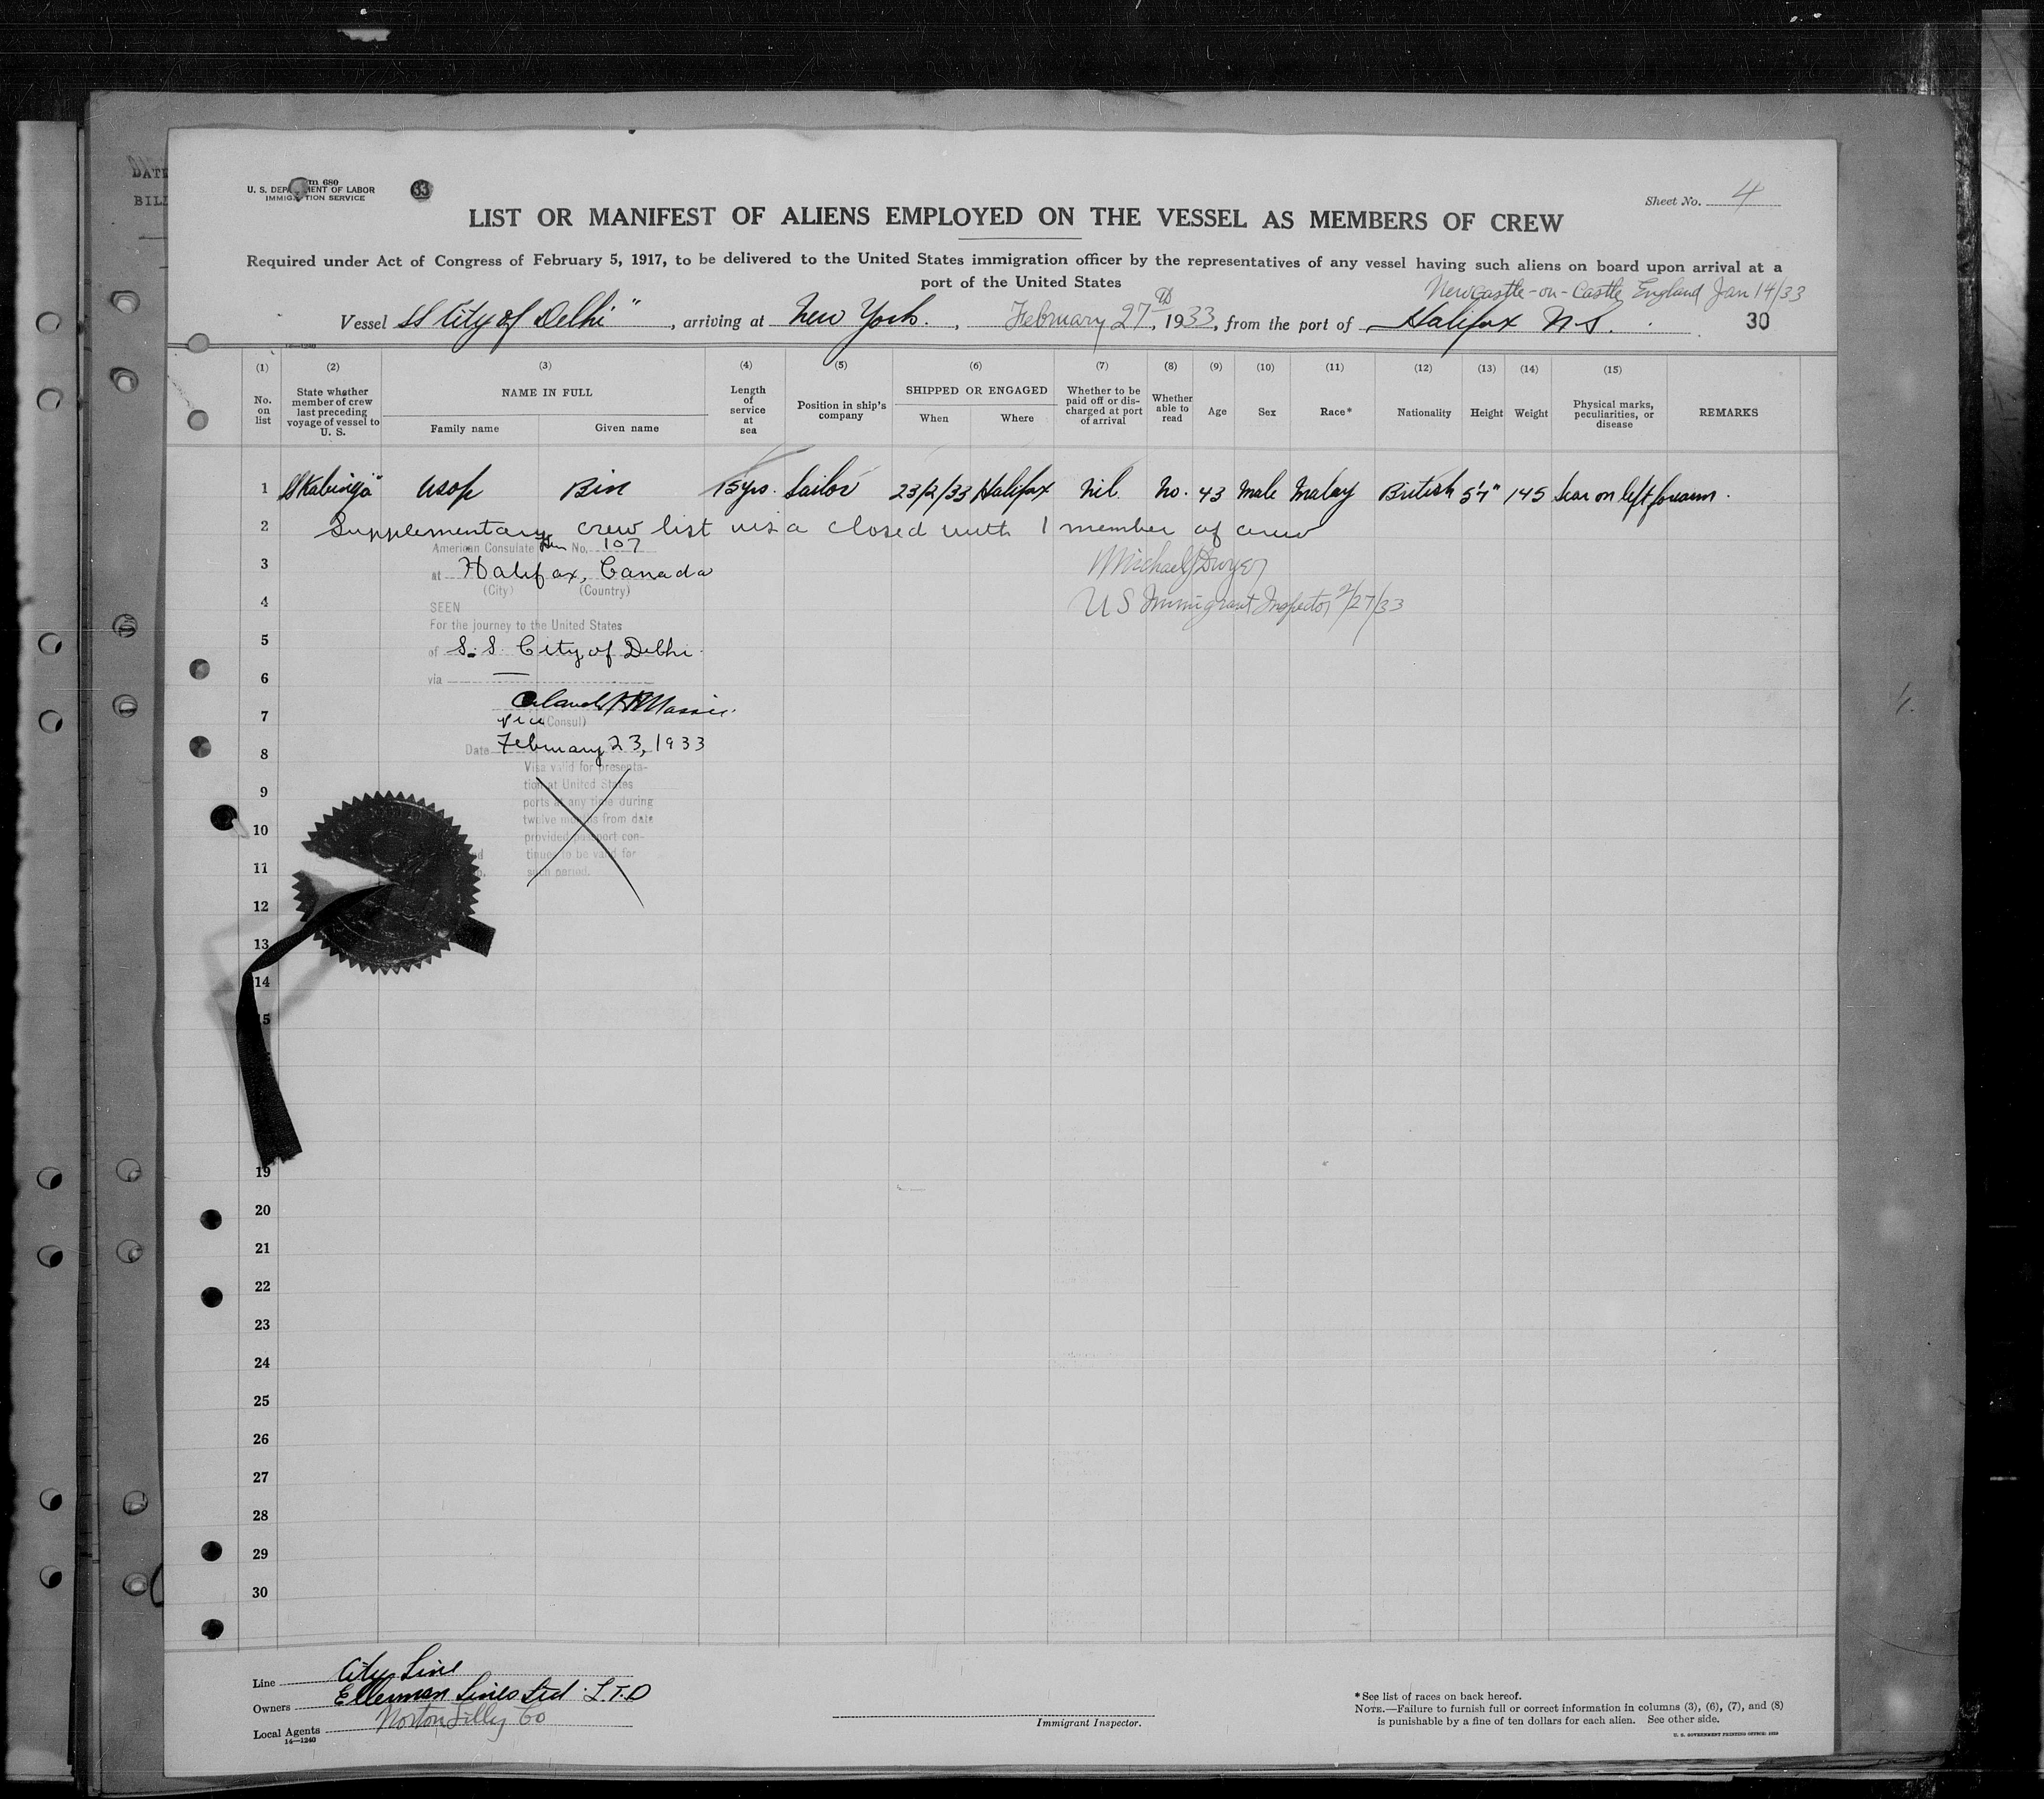 DATE
BILL
Form 680
U. S. DEPARTMENT OF LABOR
IMMIGRATION SERVICE
33
Sheet No. 4
LIST OR MANIFEST OF ALIENS EMPLOYED ON THE VESSEL AS MEMBERS OF CREW
Required under Act of Congress of February 5, 1917, to be delivered to the United States immigration officer by the representatives of any vessel having such aliens on board upon arrival at a
port of the United States
Newcastle-on-Castle, England Jan 14/33
Vessel SS "City of Delhi", arriving at New York., February 27th, 1933, from the port of Halifax N.S. 30
14—1240
(1) (2) (3) (4) (5) (6) (7) (8) (9) (10) (11) (12) (13) (14) (15)
No. on list
State whether member of crew last preceding voyage of vessel to U. S.
NAME IN FULL
Family name Given name
Length of service at sea
Position in ship's company
SHIPPED OR ENGAGED
When Where
Whether to be paid off or discharged at port of arrival
Whether able to read
Age Sex Race* Nationality Height Weight
Physical marks, peculiarities, or disease
REMARKS
1 SS "Kabinga" Usop Bin 15 yrs. Sailor 23/2/33 Halifax Nil. No. 43 Male Malay British 5'7" 145 Scar on left forearm.
2 Supplementary crew list visa closed with 1 member of crew
American Consulate Gen No. 107
3 at Halifax, Canada Michael J Dwyer
(City) (Country)
4 SEEN US Immigrant Inspector 2/27/33
For the journey to the United States
5 of S.S. City of Delhi.
6 via —
7 (Vice Consul)
8 Date February 23, 1933
Visa valid for presenta-
9 tion at United States
ports at any time during
twelve months from date
10 provided passport con-
tinues to be valid for
11 such period.
12
13
14
15
19
20
21
22
23
24
25
26
27
28
29
30
Line City Line
Owners Ellerman Lines Ltd. L.T.D
Local Agents Norton Lilly Co
14—1240
Immigrant Inspector.
* See list of races on back hereof.
NOTE.—Failure to furnish full or correct information in columns (3), (6), (7), and (8)
is punishable by a fine of ten dollars for each alien. See other side.